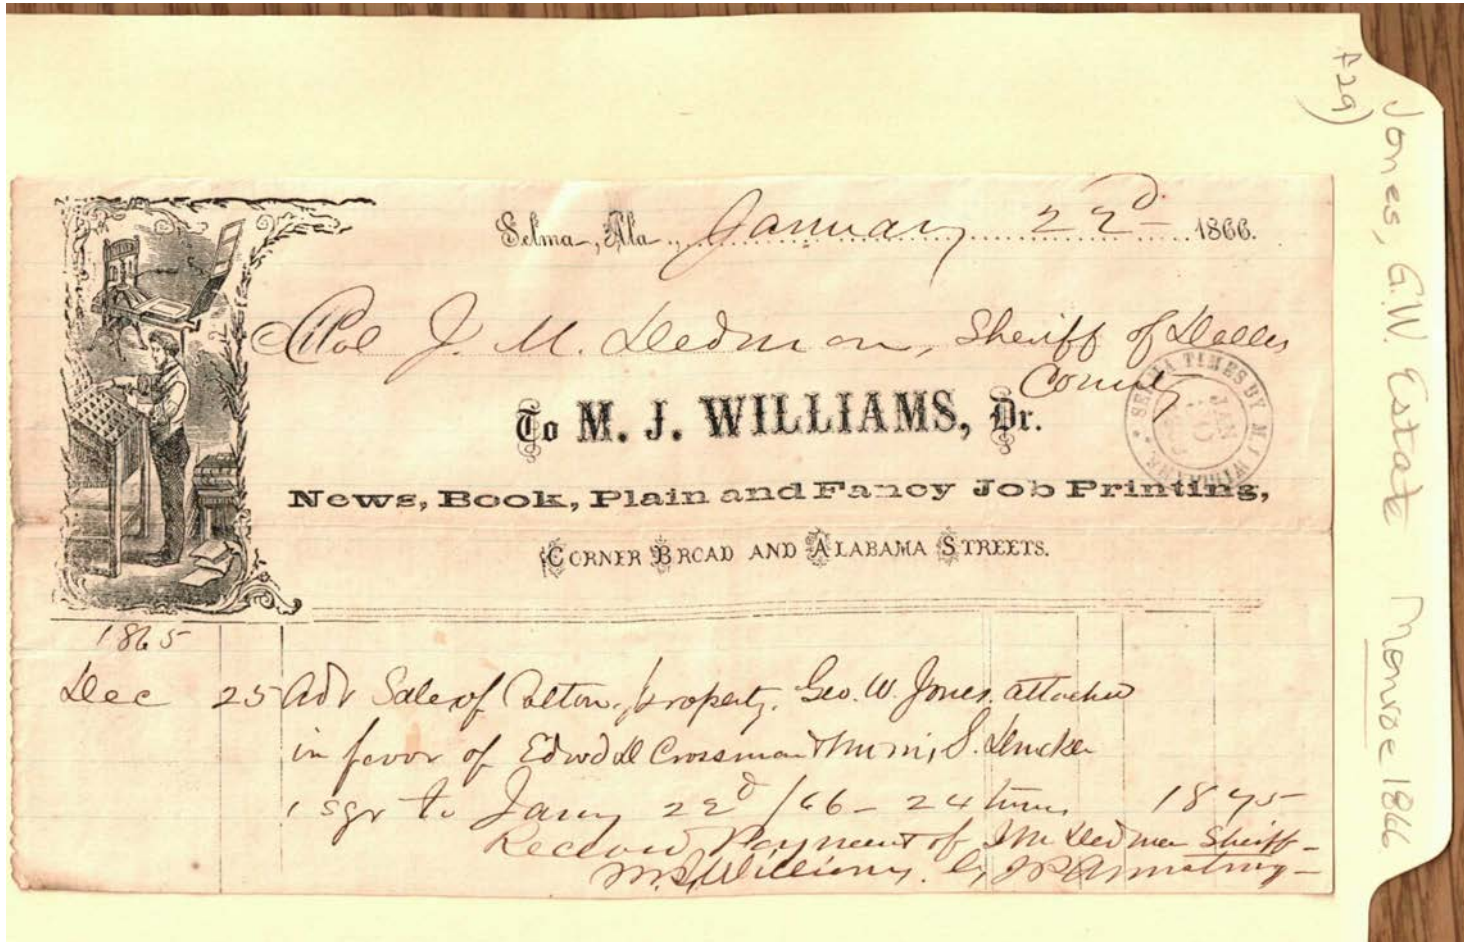 Selma, Ala., January 22d 1866.
Col J. M. Dedman, Sheriff of Dallas
County
To M. J. WILLIAMS, Dr.
News, Book, Plain and Fancy Job Printing,
CORNER BROAD AND ALABAMA STREETS.
SELMA TIMES BY M. J. WILLIAMS
JAN
1865
Dec 25 Adv Sale of Cotton, property, Geo. W. Jones, attached
in favor of Edwd D Crossman & S.
1 sqr to Jany 22d /66 - 24 times 18 75
Received Payment of J M Dedman Sheriff -
M. J. Williams. by J P Armstrong -
Jones, G.W. Estate Monroe 1866
F29)